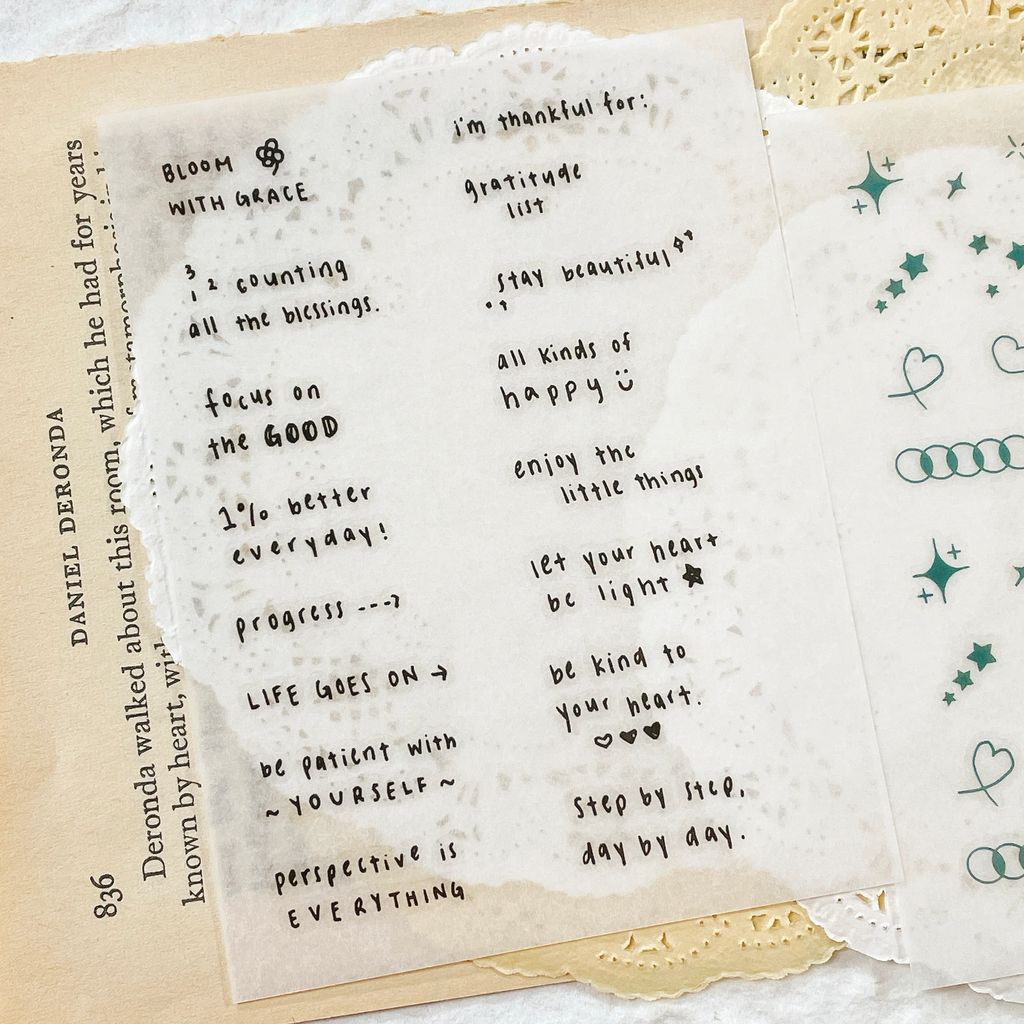 BLOOM
WITH GRACE
3
1 2 counting
all the blessings.
focus on
the GOOD
1% better
everyday!
progress --->
LIFE GOES ON →
be patient with
~ YOURSELF ~
perspective is
EVERYTHING
i'm thankful for:
gratitude
list
stay beautiful
all kinds of
happy
enjoy the
little things
let your heart
be light
be kind to
your heart.
step by step,
day by day.
836
DANIEL DERONDA
Deronda walked about this room, which he had for years
known by heart, with